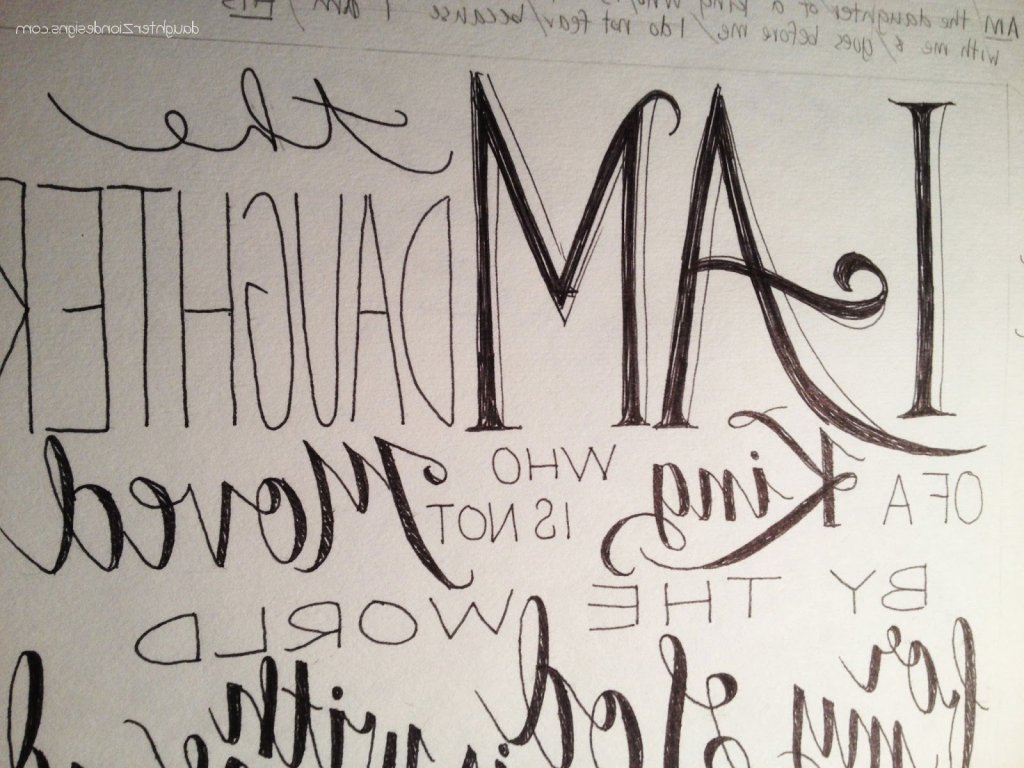 daughterZiondesigns.com
AM/the daughter of a king who
with me &/goes before me,/I do not fear/because I am/HIS
I AM the
DAUGHTER
OF A King WHO
IS NOT Moved
BY THE WORLD
for
my God is with